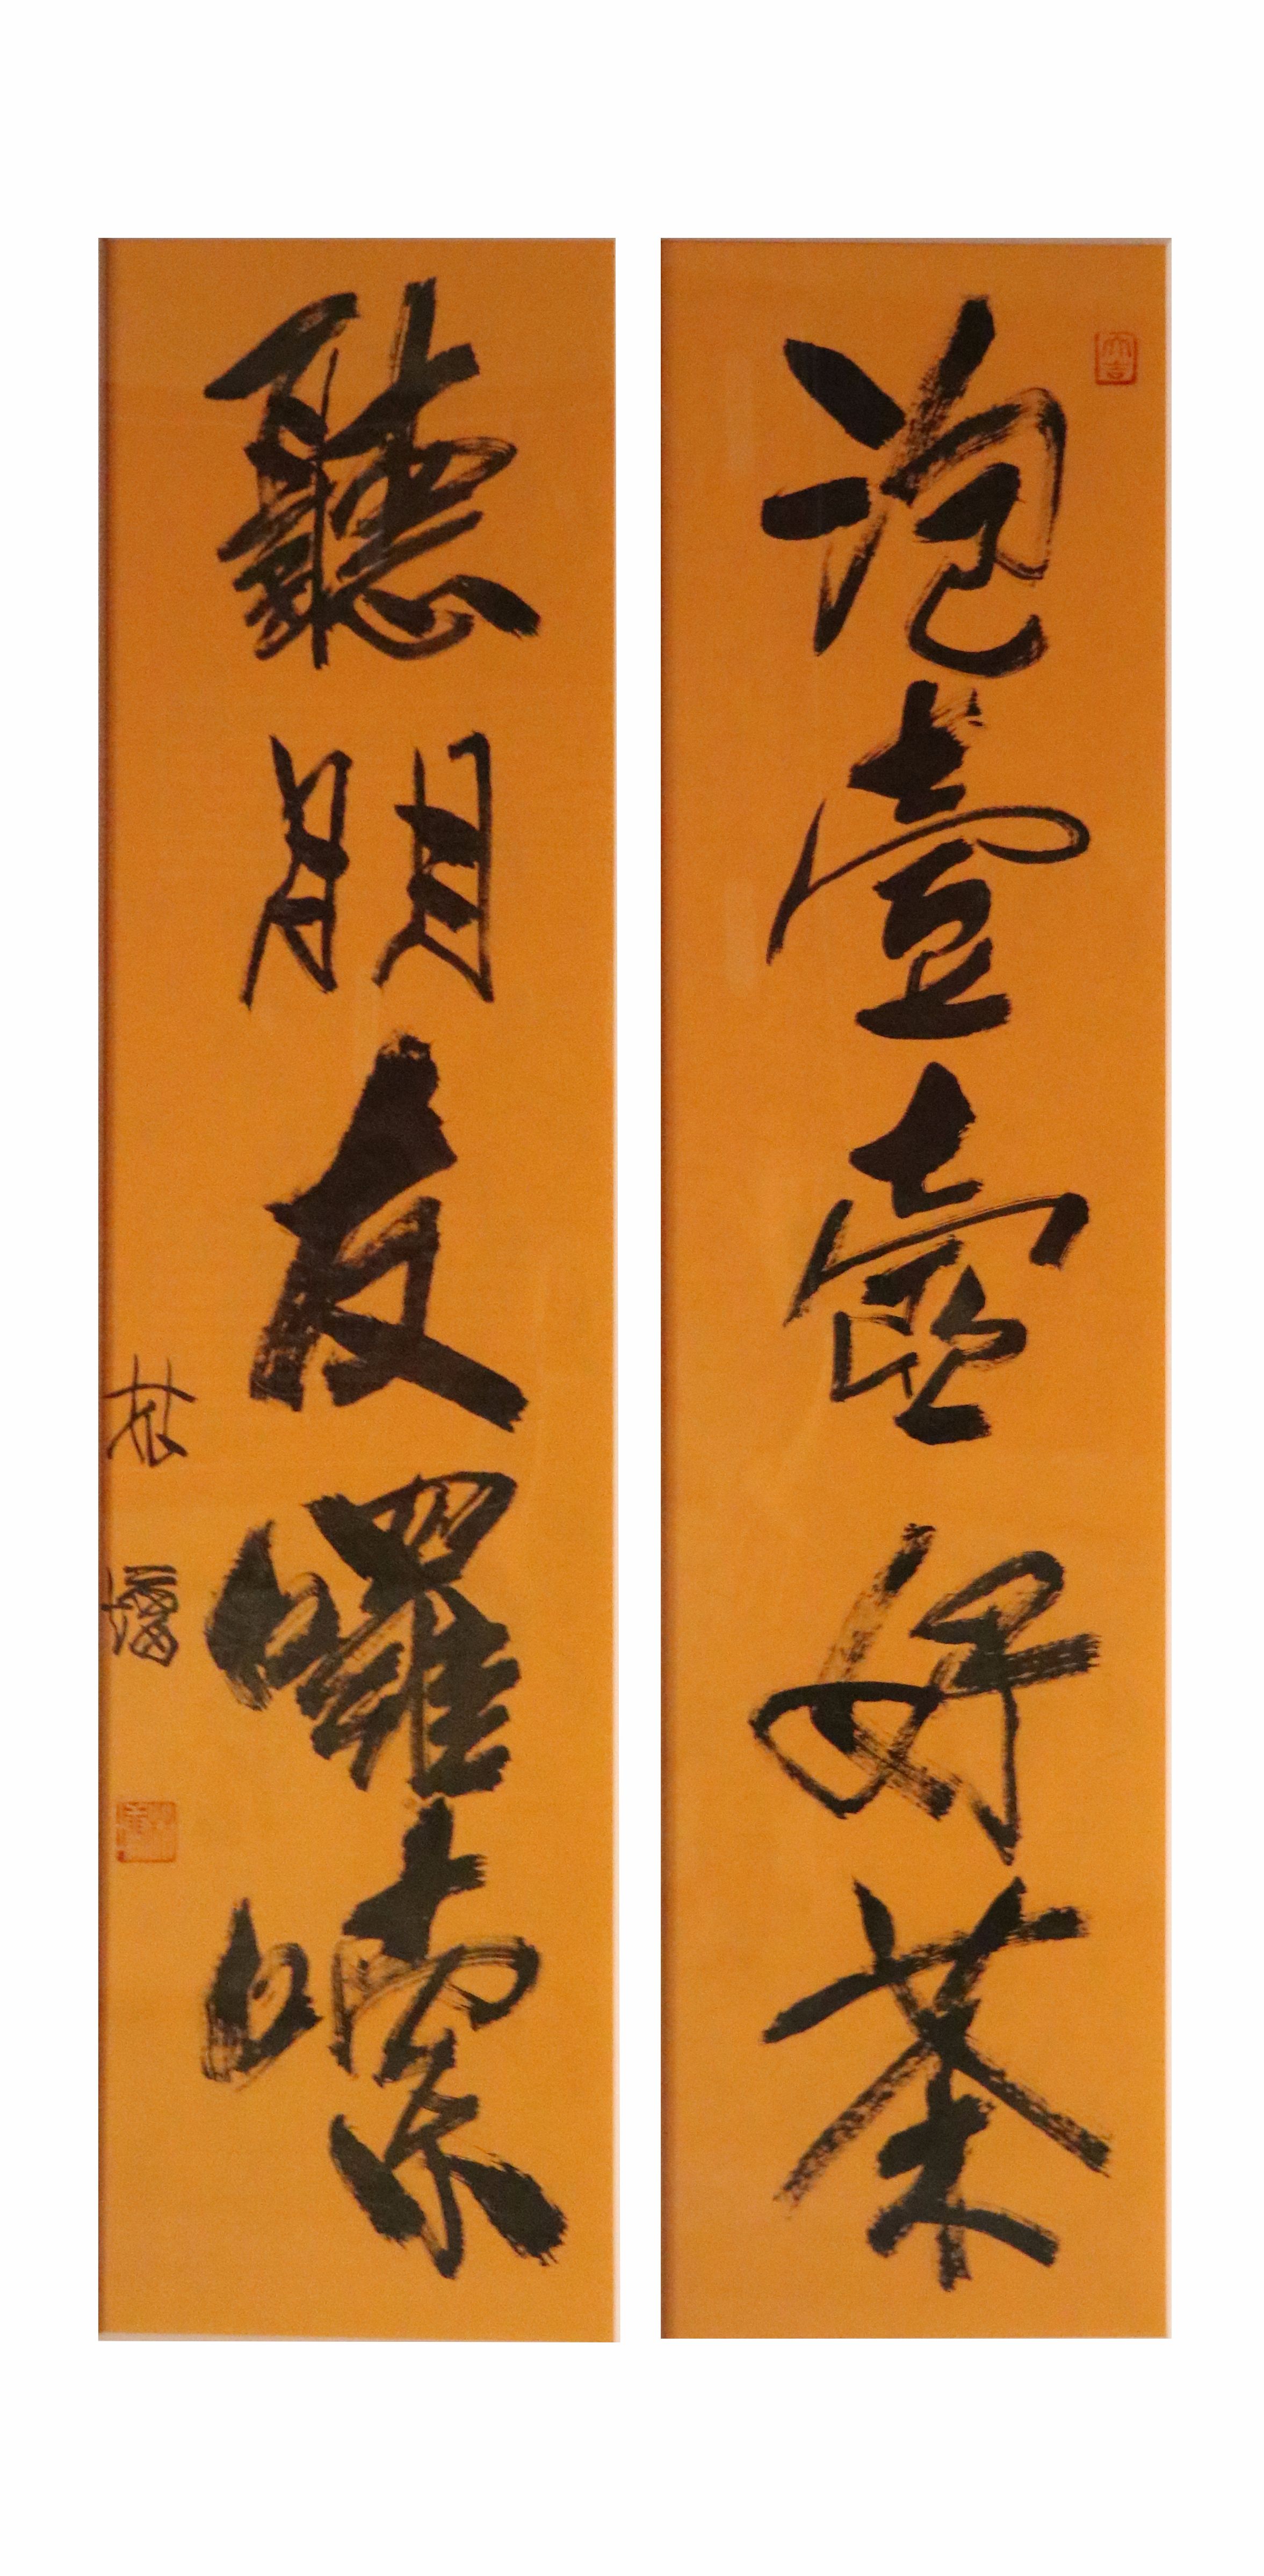 泡壹壺好茶
聽朋友囉嗦
大吉